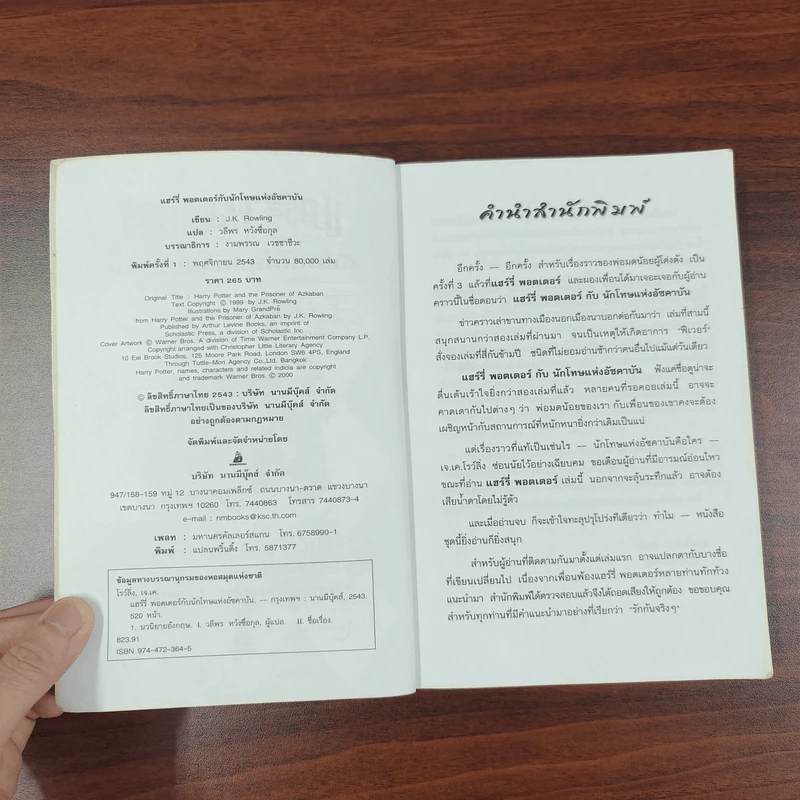 แฮร์รี่ พอตเตอร์กับนักโทษแห่งอัซคาบัน
เขียน : J.K. Rowling
แปล : วลีพร หวังซื่อกุล
บรรณาธิการ : งามพรรณ เวชชาชีวะ
พิมพ์ครั้งที่ 1 : พฤศจิกายน 2543 จำนวน 80,000 เล่ม
ราคา 265 บาท
Original Title : Harry Potter and the Prisoner of Azkaban
Text Copyright © 1999 by J.K. Rowling
Illustrations by Mary GrandPré
from Harry Potter and the Prisoner of Azkaban by J.K. Rowling.
Published by Arthur Levine Books, an imprint of
Scholastic Press, a division of Scholastic Inc.
Cover Artwork © Warner Bros. A division of Time Warner Entertainment Company L.P.
Copyright arranged with Christopher Little Literary Agency
10 Eel Brook Studios, 125 Moore Park Road, London SW6 4PS, England
Through Tuttle-Mori Agency Co.,Ltd. Bangkok
Harry Potter, names, characters and related indicia are copyright
and trademark Warner Bros. © 2000
© ลิขสิทธิ์ภาษาไทย 2543 : บริษัท นานมีบุ๊คส์ จำกัด
ลิขสิทธิ์ภาษาไทยเป็นของบริษัท นานมีบุ๊คส์ จำกัด
อย่างถูกต้องตามกฎหมาย
จัดพิมพ์และจัดจำหน่ายโดย
บริษัท นานมีบุ๊คส์ จำกัด
947/158-159 หมู่ 12 บางนาคอมเพล็กซ์ ถนนบางนา-ตราด แขวงบางนา
เขตบางนา กรุงเทพฯ 10260 โทร. 7440863 โทรสาร 7440873-4
e-mail : nmbooks@ksc.th.com
เพลท : มหานครคัลเลอร์สแกน โทร. 6758990-1
พิมพ์ : แปลนพริ้นติ้ง โทร. 5871377
ข้อมูลทางบรรณานุกรมของหอสมุดแห่งชาติ
โรว์ลิ่ง, เจ.เค.
แฮร์รี่ พอตเตอร์กับนักโทษแห่งอัซคาบัน. — กรุงเทพฯ : นานมีบุ๊คส์, 2543.
520 หน้า.
1. นวนิยายอังกฤษ. I. วลีพร หวังซื่อกุล, ผู้แปล. II. ชื่อเรื่อง.
823.91
ISBN 974-472-364-5
คำนำสำนักพิมพ์
อีกครั้ง — อีกครั้ง สำหรับเรื่องราวของพ่อมดน้อยผู้โด่งดัง เป็น
ครั้งที่ 3 แล้วที่แฮร์รี่ พอตเตอร์ และผองเพื่อนได้มาเจอะเจอกับผู้อ่าน
คราวนี้ในชื่อตอนว่า แฮร์รี่ พอตเตอร์ กับ นักโทษแห่งอัซคาบัน
ข่าวคราวเล่าขานทางเมืองนอกเมืองนาบอกต่อกันมาว่า เล่มที่สามนี้
สนุกสนานกว่าสองเล่มที่ผ่านมา จนเป็นเหตุให้เกิดอาการ "ฟีเวอร์"
สั่งจองเล่มที่สี่กันข้ามปี ชนิดที่ไม่ยอมอ่านช้ากว่าคนอื่นไปแม้แต่วันเดียว
แฮร์รี่ พอตเตอร์ กับ นักโทษแห่งอัซคาบัน ฟังแค่ชื่อดูน่าจะ
ตื่นเต้นเร้าใจยิ่งกว่าสองเล่มที่แล้ว หลายคนที่รอคอยเล่มนี้ อาจจะ
คาดเดากันไปต่างๆ ว่า พ่อมดน้อยของเรา กับเพื่อนของเขาคงจะต้อง
เผชิญหน้ากับสถานการณ์ที่หนักหนายิ่งกว่าเดิมเป็นแน่
แต่เรื่องราวที่แท้เป็นเช่นไร — นักโทษแห่งอัซคาบันคือใคร —
เจ.เค.โรว์ลิ่ง ซ่อนนัยไว้อย่างเฉียบคม ขอเตือนผู้อ่านที่มีอารมณ์อ่อนไหว
ขณะที่อ่าน แฮร์รี่ พอตเตอร์ เล่มนี้ นอกจากจะลุ้นระทึกแล้ว อาจต้อง
เสียน้ำตาโดยไม่รู้ตัว
และเมื่ออ่านจบ ก็จะเข้าใจทะลุปรุโปร่งทีเดียวว่า ทำไม — หนังสือ
ชุดนี้ยิ่งอ่านก็ยิ่งสนุก
สำหรับผู้อ่านที่ติดตามกันมาตั้งแต่เล่มแรก อาจแปลกตากับบางชื่อ
ที่เขียนเปลี่ยนไป เนื่องจากเพื่อนพ้องแฮร์รี่ พอตเตอร์หลายท่านทักท้วง
แนะนำมา สำนักพิมพ์ได้ตรวจสอบแล้วจึงได้ถอดเสียงให้ถูกต้อง ขอขอบคุณ
สำหรับทุกท่านที่มีคำแนะนำมาอย่างที่เรียกว่า "รักกันจริงๆ"